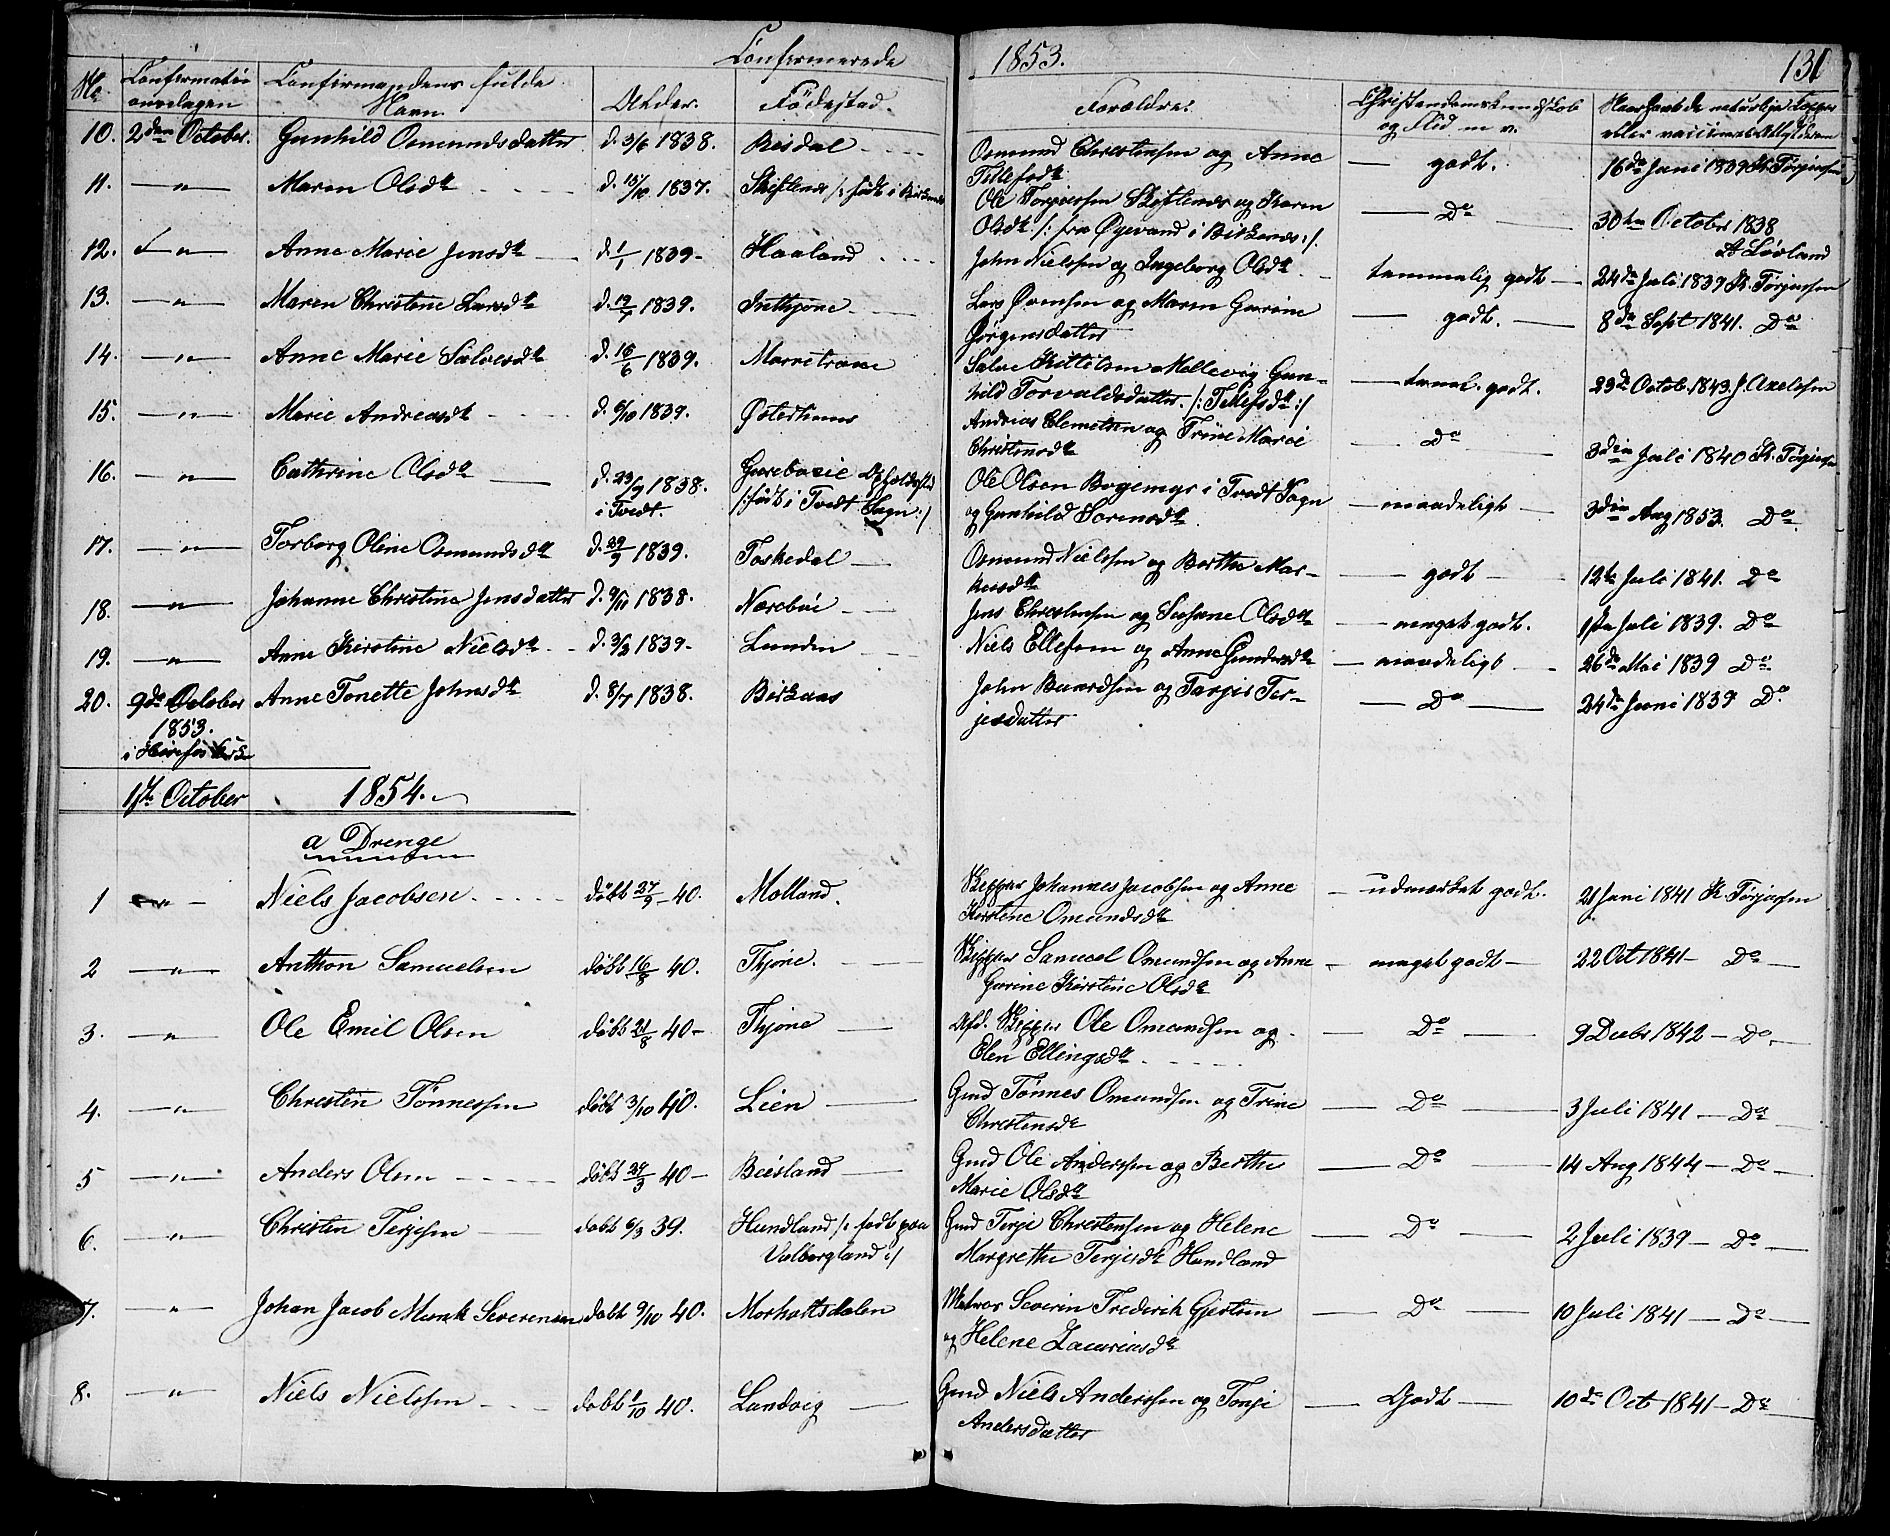 Confirmerede 1853. 131
No Confirmations-dagen Confirmandens fulde Navn Alder. Fødestæd. Forældre. Christendomskundskab og Flid m. v. naturlige Kopper eller vaccineret
10. 2den October. Gunhild Osmundsdatter d. 3/6 1838. Risdal Osmund Christensen og Anne Tellefsdt godt. 16de Juni 1839 K. Tørjusen
11. — " — Maren Olsdt d. 15/10 1837. Skiftenes /: født i Birkenes Ole Torjussen Skiftenes og Karen Olsdt. /: fra Øgevand i Birkenes :/. Do 30te October 1838 A Løvland
12. — " — Anne Marie Jensdt d. 1/1 1839 - Haaland John Nielsen og Ingeborg Olsdt. temmelig godt 24de Juli 1839 K. Tørjusen
13. — " — Maren Christine Larsdt d. 19/7 1839. Inthjøne Lars Evensen og Maren Gurine Jørgensdatter godt. 8de Sept 1841. Do
14. — " — Anne Marie Salvesdt d. 16/6 1839. Marretrane Salve Kittelsen Mollevig Gun-
hild Torvaldsdatter. /: Tellefsdt :/ teml. godt. 23de Octob. 1843. J. Axelsen
15. — " — Marie Andreasdt d. 6/10 1839. Østerhuus Andreas Clemetsen og Trine Marie Christensdt Do 3die Juli 1840 K. Tørjusen
16. — " — Cathrine Olsdt d. 23/7 1838. i Tvedt. /: født i Tvedt Sogn :/ Ole Olsen Bogemyr i Tvedt Sogn og Gunhild Sorensdt. maadeligt 3die Aug 1853. Do.
17. — " — Torborg Oline Osmundsdt d. 29/9 1839. Toskedal Osmund Nielsen og Berthe Mar-
kusdt godt 12te Juli 1841. Do
18. — " — Johanne Christine Jensdatter d. 9/11 1838. Nørebøe Jens Christensen og Susane Olsdt meget godt. 1ste Juli 1839. Do
19. — " — Anne Kirstine Nielsdt d. 3/3 1839 - Lunden Niels Ellefsen og Anne Gundersdt maadeligt 26de Mai 1839 Do
20. 9de October 1853. Anne Tonette Johnsdt d. 8/7 1838. Birkaas John Baardsen og Targis Ter-
jesdatter Do 24de Juni 1839 Do
1ste October 1854.
a Drenge
1 — " — Niels Jacobsen døbt 27/9 - 40. Molland. Skipper Johannes Jacobsen og Anne Kirstine Omundsdt udmerket godt. 21 Juni 1841 K. Tørjusen
2 — " — Anthon Samuelsen døbt 16/8 40. Fhjøne. Skipper Samuel Omundsen og Anne Gurine Kirstine Olsdt meget godt — 22 Oct 1841 - Do
3. — " — Ole Emil Olsen døbt 21/8 40 - Fhjøne Afd. Skipper Ole Omundsen og Elen Ellingsdt. Do 9 Decbr 1842 - Do
4. — " — Christen Tønnessen døbt 3/10 40. Lien Gmd Tønnes Omundsen og Trine Christensdt Do 3 Juli 1841 - Do
5 — " — Anders Olsen døbt 29/3 40 - Biesland Gmd Ole Anderssen og Berthe Marie Olsdt Do 14 Aug 1844 - Do
6. — " — Christen Terjesen døbt 6/3 39. Hundland /: født paa Valborgland :/ Gmd Terje Christensen og Helene Margrethe Terjesdt Hundland Do 2 Juli 1839 - Do
7. — " — Johan Jacob Munk Severensen døbt 9/10 40. Morholtsdalen Matros Severin Frederik Gjertsen og Helene Lauriusdt Do 10 Juli 1841 - Do
8. — " — Niels Nielssen døbt 1/10 40. Landvig Gmd Niels Anderssen og Tonje Andersdatter Godt 10de Oct 1841 - Do